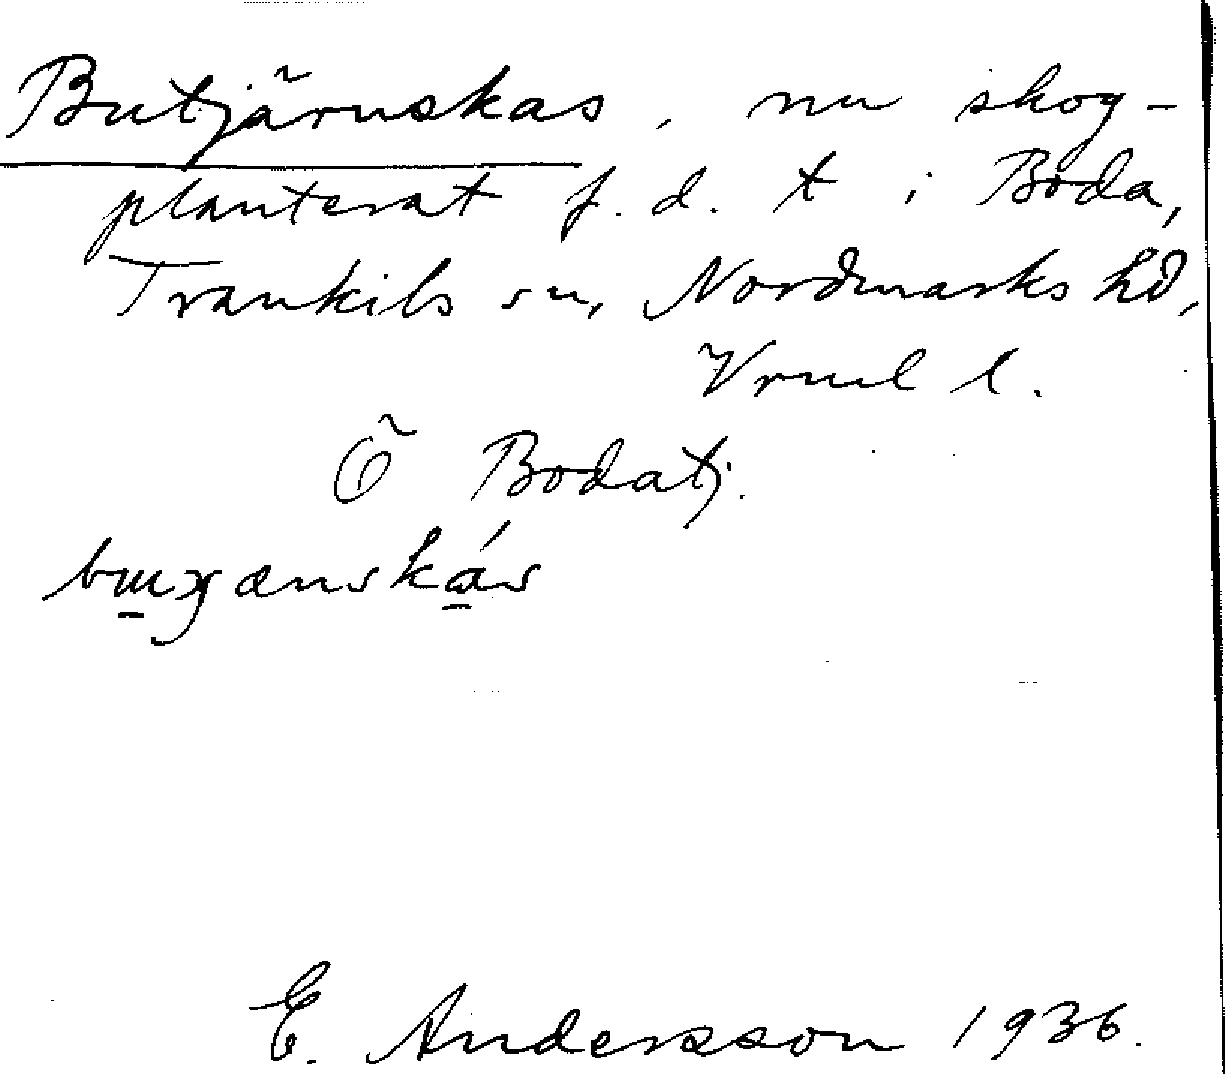 Butjärnskas, nu skog-
planterat f. d. t i Boda,
Trankils sn, Nordmarks hd,
Vrml l.
Ö Bodatj.
E. Andersson 1936.